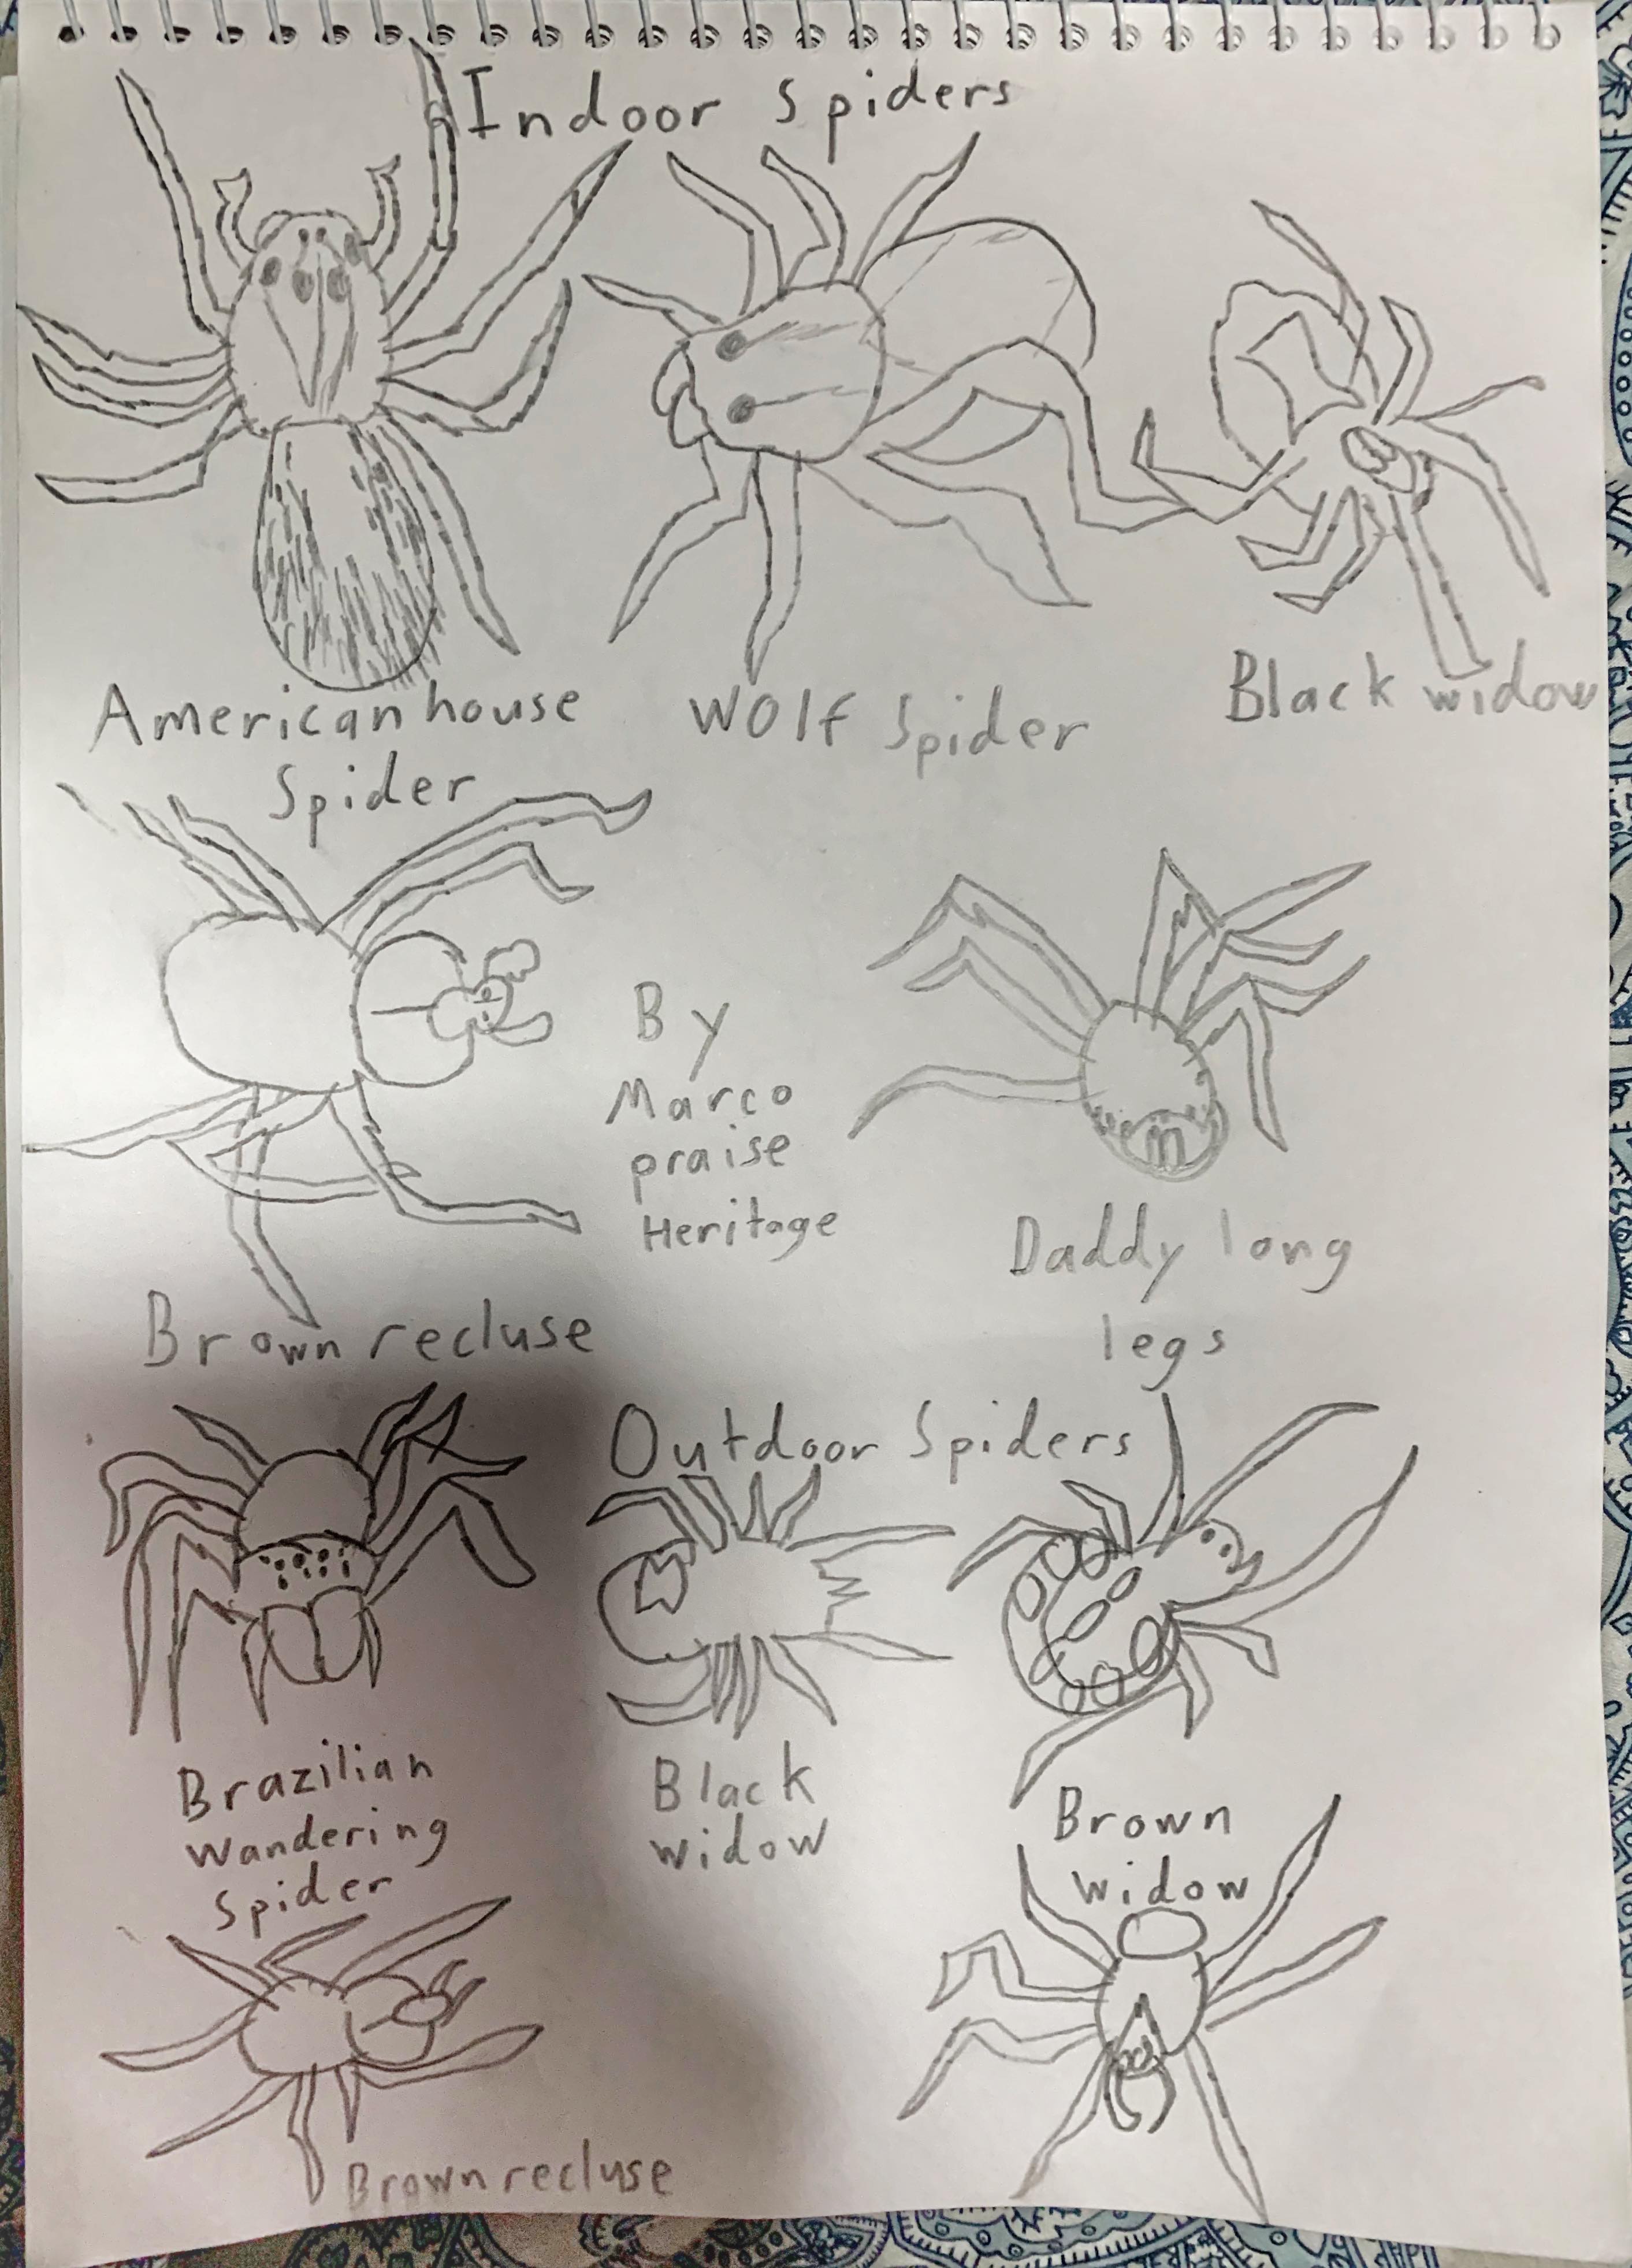 Indoor Spiders
American house
Spider
Wolf Spider
Black widow
By
Marco
praise
Heritage
Brown recluse
Daddy long
legs
Outdoor Spiders
Brazilian
Wandering
Spider
Black
widow
Brown
widow
Brown recluse